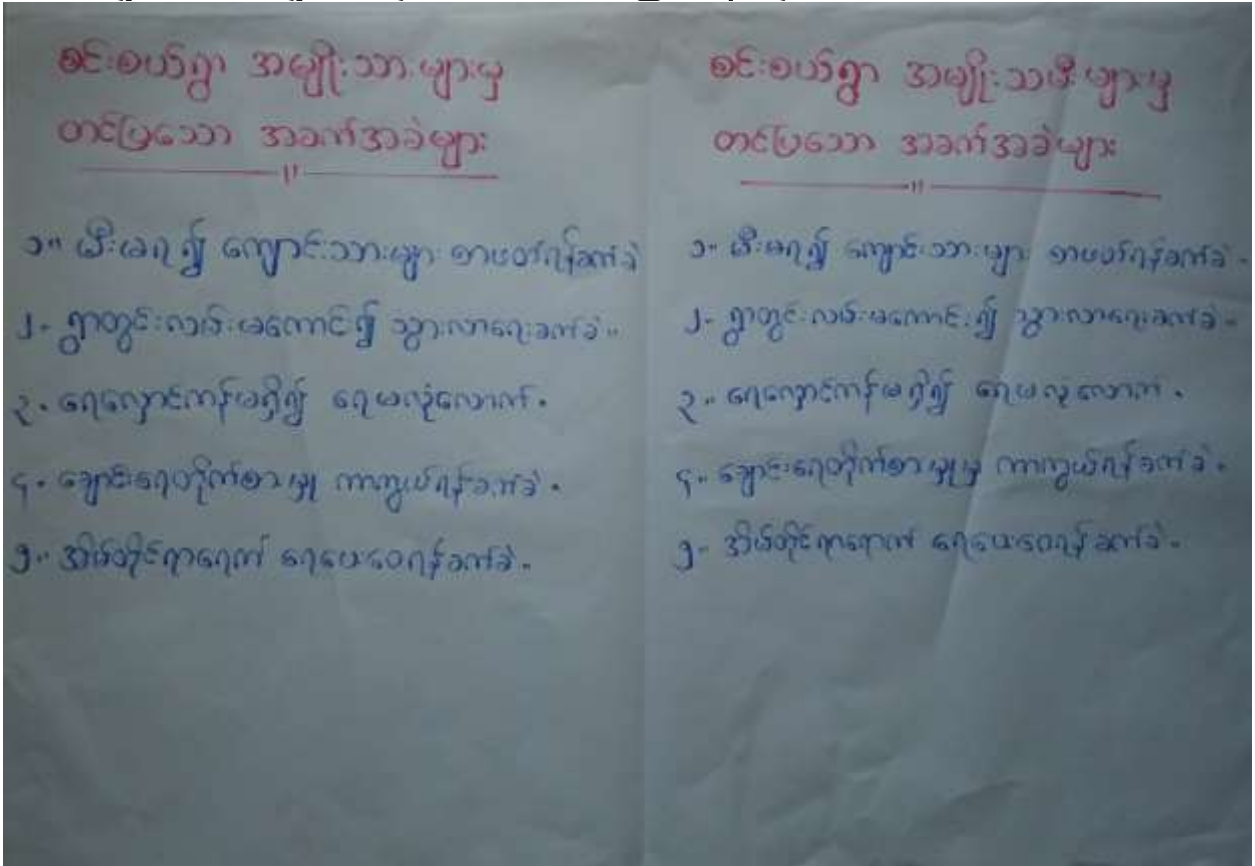 စင်းစယ်ရွာ အမျိုးသားများမှ
တင်ပြသော အခက်အခဲများ
၁။ မီးမရ၍ ကျောင်းသားများ စာဖတ်ရန်ခက်ခဲ
၂။ ရွာတွင်းလမ်းမကောင်း၍ သွားလာရေးခက်ခဲ။
၃။ ရေလှောင်ကန်မရှိ၍ ရေမလုံလောက်။
၄။ ချောင်းရေတိုက်စားမှု ကာကွယ်ရန်ခက်ခဲ။
၅။ အိမ်တိုင်ရာရောက် ရေပေးဝေရန်ခက်ခဲ။
စင်းစယ်ရွာ အမျိုးသမီးများမှ
တင်ပြသော အခက်အခဲများ
၁။ မီးမရ၍ ကျောင်းသားများ စာဖတ်ရန်ခက်ခဲ။
၂။ ရွာတွင်းလမ်းမကောင်း၍ သွားလာရေးခက်ခဲ။
၃။ ရေလှောင်ကန်မရှိ၍ ရေမလုံလောက်။
၄။ ချောင်းရေတိုက်စားမှုမှ ကာကွယ်ရန်ခက်ခဲ။
၅။ အိမ်တိုင်ရာရောက် ရေပေးဝေရန်ခက်ခဲ။